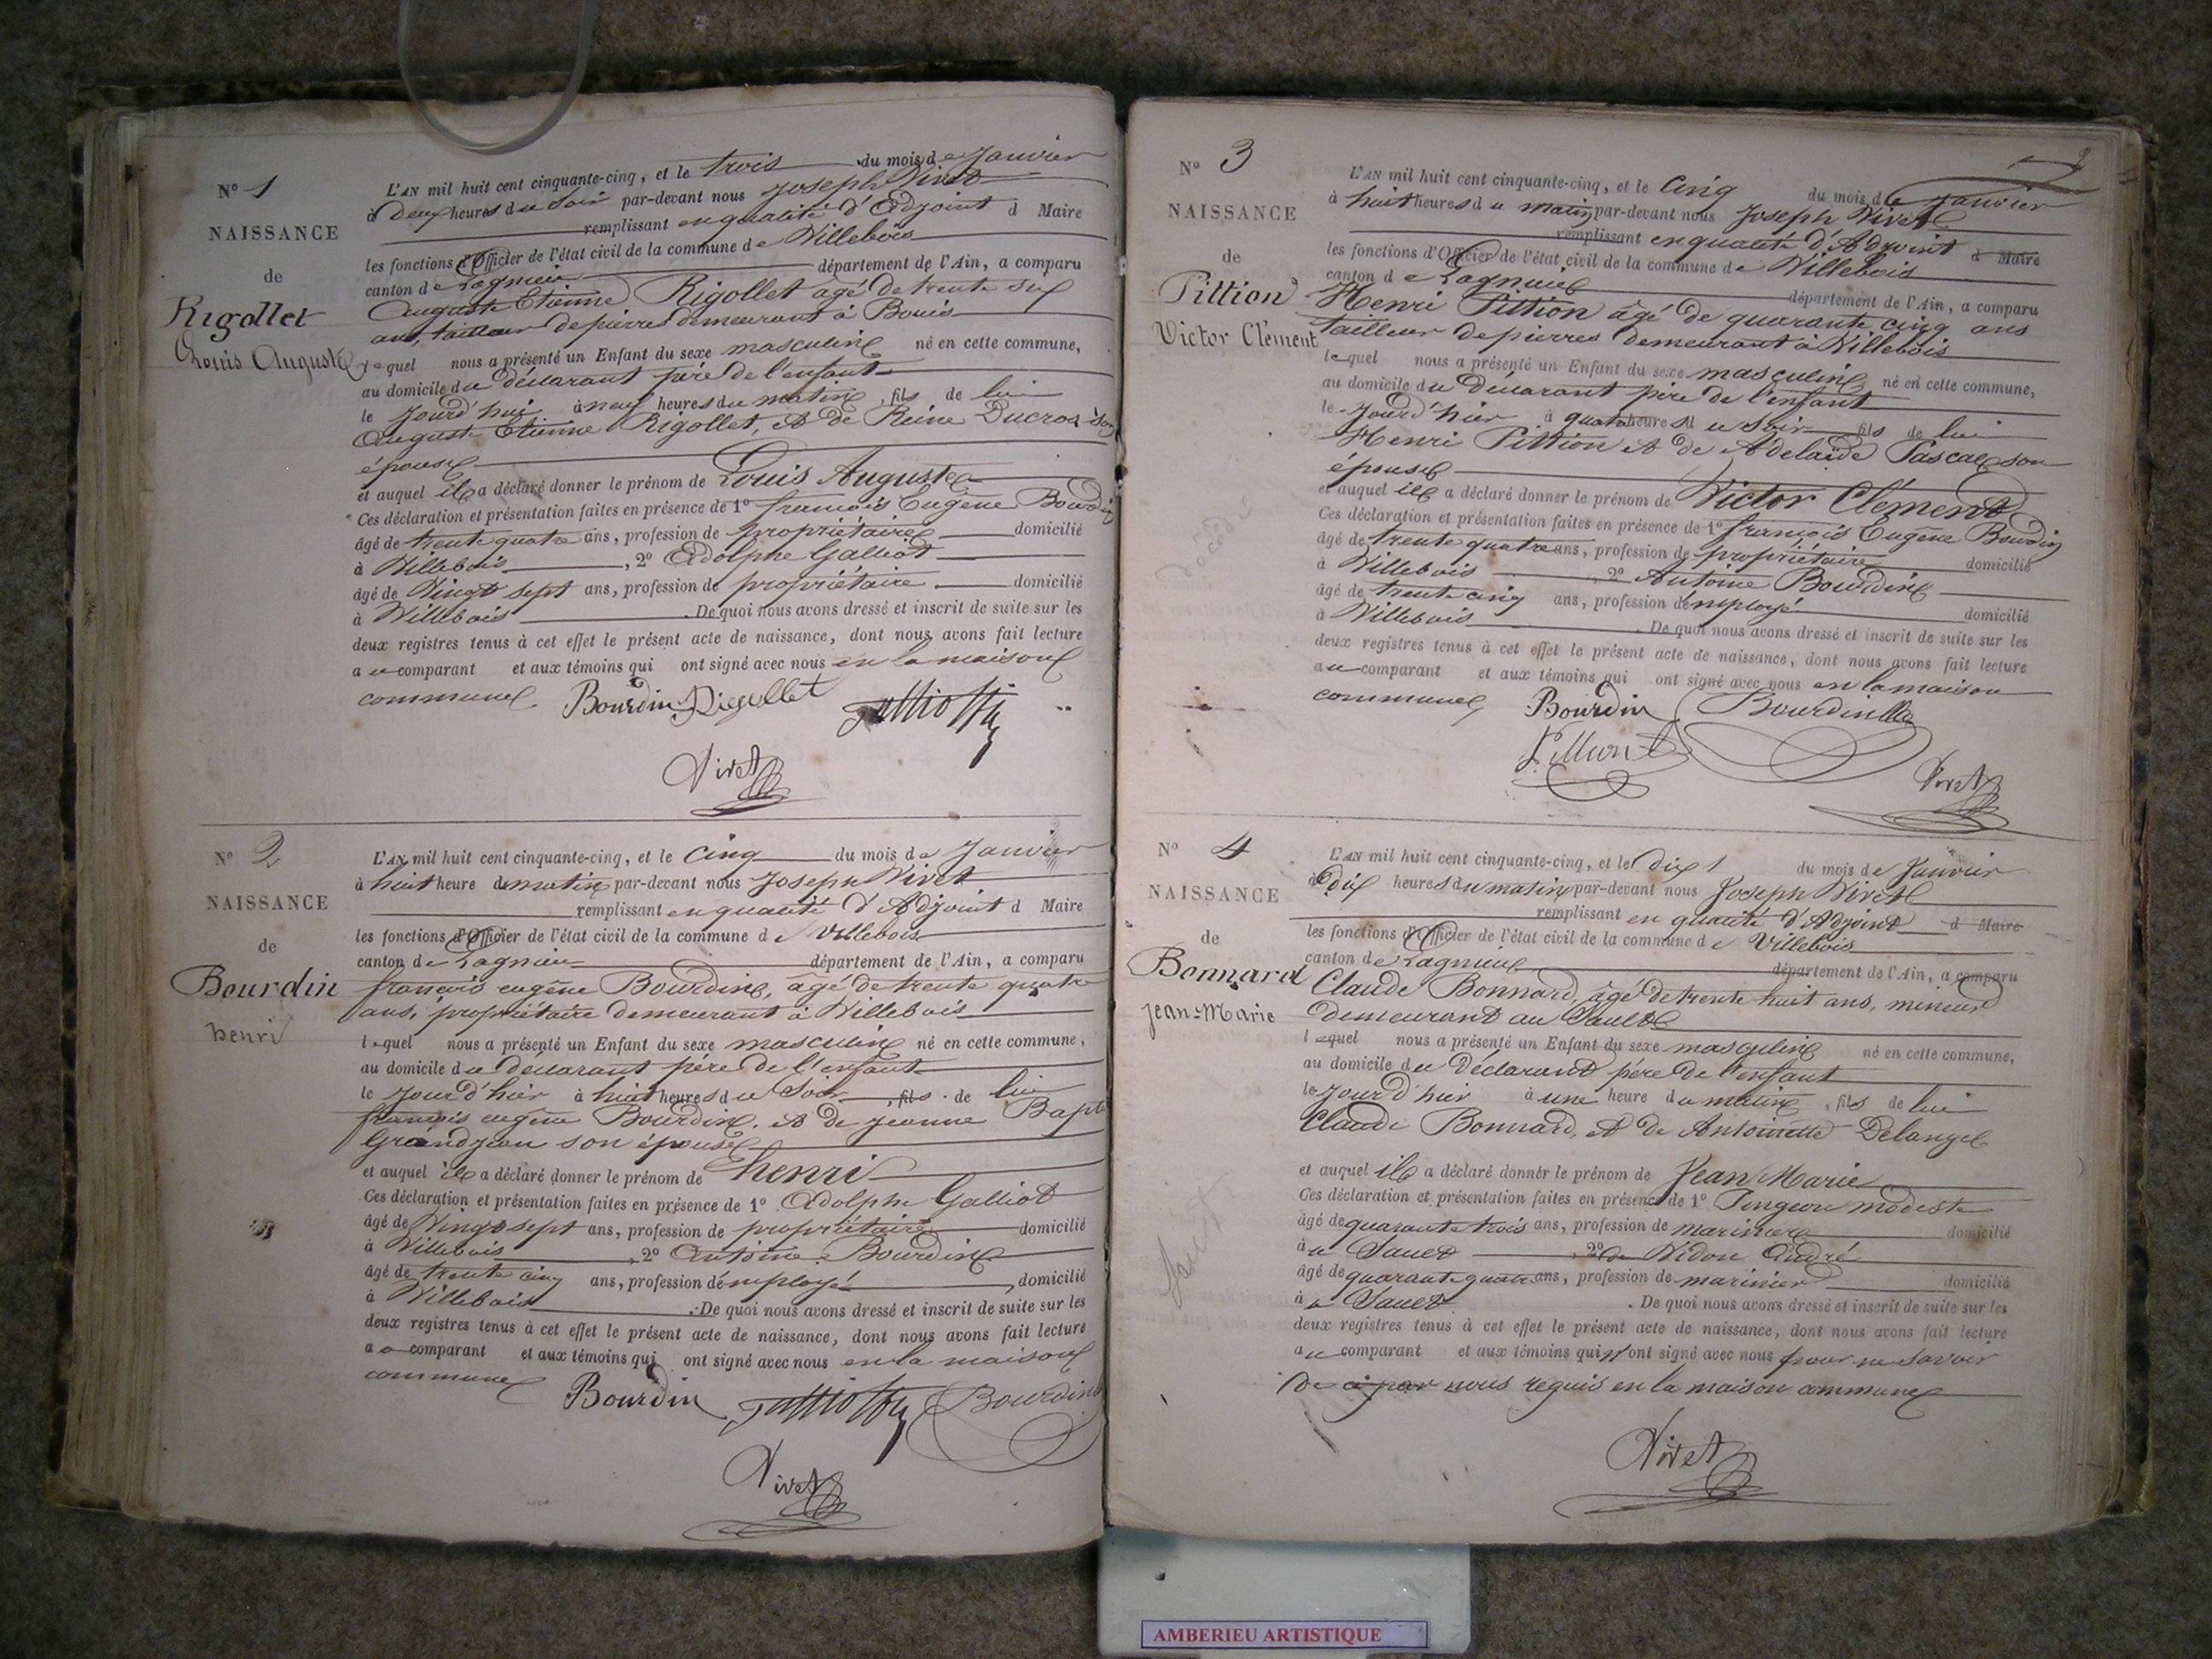 Nº 1
NAISSANCE
de
Rigollet
Louis Auguste
L'AN mil huit cent cinquante-cinq, et le trois du mois de Janvier
à deux heures du soir par-devant nous Joseph Vivet
remplissant en qualité d'Adjoint d Maire
les fonctions d'Officier de l'état civil de la commune de Villebois
canton de Lagnieu département de l'Ain, a comparu
Auguste Etienne Rigollet agé de trente six
ans, tailleur de pierres demeurant à Bouis
lequel nous a présenté un Enfant du sexe masculin né en cette commune,
au domicile du déclarant père de l'enfant
le Jourd'hui à neuf heures du matin, fils de lui
Auguste Etienne Rigollet, et de Reine Ducros son
épouse
et auquel il a déclaré donner le prénom de Louis Auguste
Ces déclaration et présentation faites en présence de 1º françois Eugène Bourdin
âgé de trente quatre ans, profession de propriétaire domicilié
à Villebois, 2º Adolphe Galliot
âgé de Vingt sept ans, profession de propriétaire domicilié
à Villebois. De quoi nous avons dressé et inscrit de suite sur les
deux registres tenus à cet effet le présent acte de naissance, dont nous avons fait lecture
au comparant et aux témoins qui ont signé avec nous en la maison
commune. Bourdin Rigollet Galliot
Vivet
Nº 2
NAISSANCE
de
Bourdin
henri
L'AN mil huit cent cinquante-cinq, et le Cinq du mois de Janvier
à huit heure du matin par-devant nous Joseph Vivet
remplissant en qualité d'Adjoint d Maire
les fonctions d'Officier de l'état civil de la commune de Villebois
canton de Lagnieu département de l'Ain, a comparu
françois eugène Bourdin, âgé de trente quatre
ans, propriétaire demeurant à Villebois
lequel nous a présenté un Enfant du sexe masculin né en cette commune,
au domicile du déclarant père de l'enfant
le Jourd'hier à huit heures du Soir, fils de lui
françois eugène Bourdin, et de jeanne Bapte
Grandjean son épouse
et auquel il a déclaré donner le prénom de henri
Ces déclaration et présentation faites en présence de 1º Adolphe Galliot
âgé de Vingt sept ans, profession de propriétaire domicilié
à Villebois, 2º Antoine Bourdin
âgé de trente cinq ans, profession d'employé, domicilié
à Villebois. De quoi nous avons dressé et inscrit de suite sur les
deux registres tenus à cet effet le présent acte de naissance, dont nous avons fait lecture
au comparant et aux témoins qui ont signé avec nous en la maison
commune Bourdin Galliot Bourdin
Vivet
Nº 3
NAISSANCE
de
Pittion
Victor Clément
L'AN mil huit cent cinquante-cinq, et le Cinq du mois de Janvier
à huit heures du matin par-devant nous Joseph Vivet
remplissant en qualité d'Adjoint d Maire
les fonctions d'Officier de l'état civil de la commune de Villebois
canton de Lagnieu département de l'Ain, a comparu
Henri Pittion âgé de quarante cinq ans
tailleur de pierres demeurant à Villebois
lequel nous a présenté un Enfant du sexe masculin, né en cette commune,
au domicile du déclarant père de l'enfant
le Jourd'hier à quatre heures du Soir fils de lui
Henri Pittion et de Adelaïde Pascal son
épouse
et auquel il a déclaré donner le prénom de Victor Clément
Ces déclaration et présentation faites en présence de 1º françois Eugène Bourdin
âgé de trente quatre ans, profession de propriétaire domicilié
à Villebois, 2º Antoine Bourdin
âgé de trente cinq ans, profession d'employé domicilié
à Villebois. De quoi nous avons dressé et inscrit de suite sur les
deux registres tenus à cet effet le présent acte de naissance, dont nous avons fait lecture
au comparant et aux témoins qui ont signé avec nous en la maison
commune, Bourdin Bourdin
Pittion
Vivet
Nº 4
NAISSANCE
de
Bonnard
jean-Marie
L'AN mil huit cent cinquante-cinq, et le dix du mois de Janvier
à dix heures du matin par-devant nous Joseph Vivet
remplissant en qualité d'Adjoint d Maire
les fonctions d'Officier de l'état civil de la commune de Villebois
canton de Lagnieu département de l'Ain, a comparu
Claude Bonnard, âgé de trente huit ans, mineur
demeurant au Sault
lequel nous a présenté un Enfant du sexe masculin né en cette commune,
au domicile du Déclarant père de l'enfant
le Jourd'hier à une heure du matin, fils de lui
Claude Bonnard, et de Antoinette Delange
et auquel il a déclaré donner le prénom de Jean Marie
Ces déclaration et présentation faites en présence de 1º Pingeon modeste
âgé de quarante trois ans, profession de marinier domicilié
au Sault, 2º Vidon André
âgé de quarante quatre ans, profession de marinier domicilié
au Sault. De quoi nous avons dressé et inscrit de suite sur les
deux registres tenus à cet effet le présent acte de naissance, dont nous avons fait lecture
au comparant et aux témoins qui n'ont signé avec nous pour ne savoir
de ce par nous requis en la maison commune
Vivet
AMBERIEU ARTISTIQUE